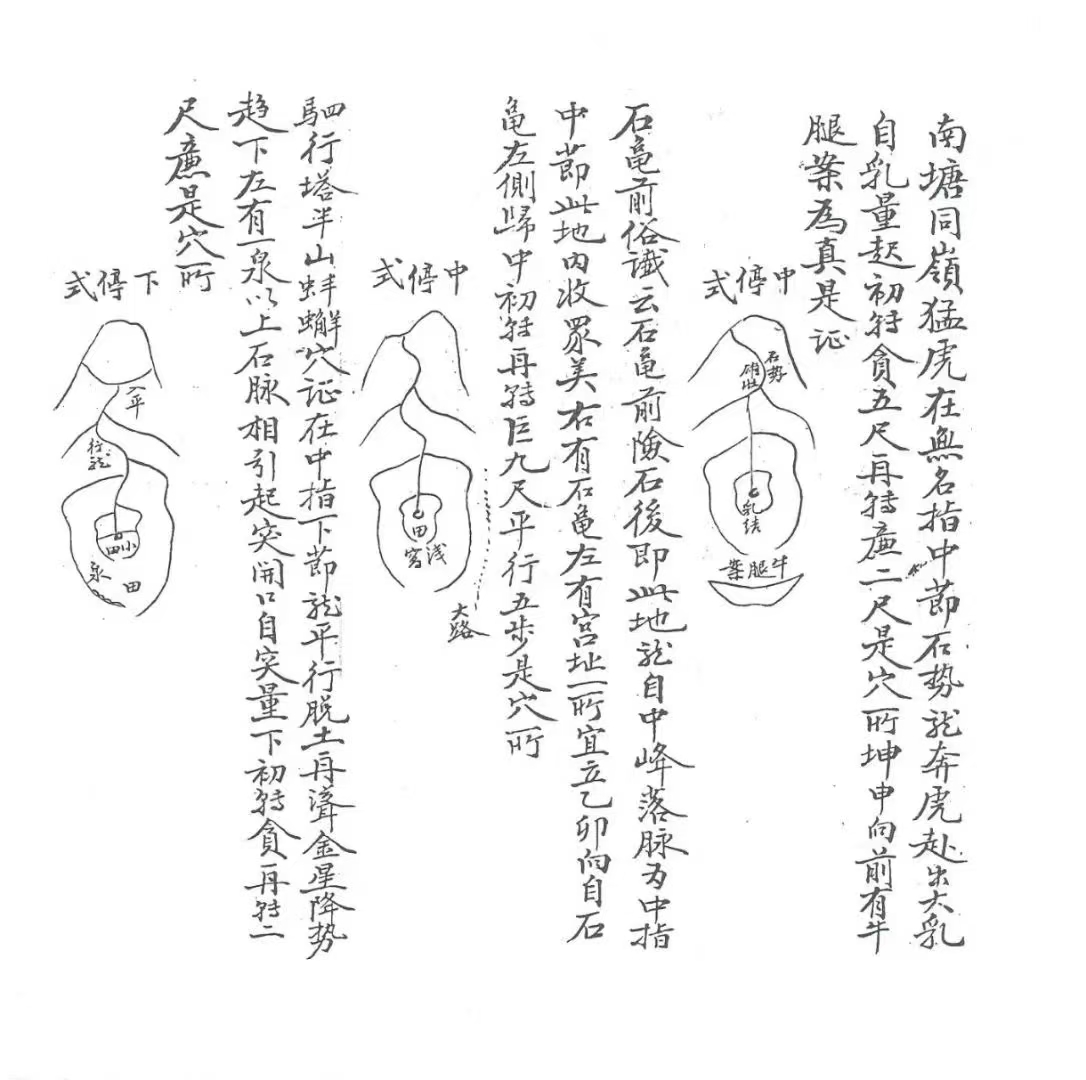 南塘同嶺猛虎在無名指中節石势龙奔虎赴出大乳
自乳量起初转貪五尺再转廉二尺是穴所坤申向前有牛
腿案為真是证
中停式
石势
乳结
牛腿案
石亀前俗讖云石亀前險石後即此地龙自中峰落脉为中指
中節此地内收眾美右有石亀左有宫址一所宜立乙卯向自石
亀左側歸中初转再转巨九尺平行五步是穴所
中停式
田
浅窩
大路
駟行塔半山蚌蠏穴证在中指下節龙平行脱土再聳金星降势
趋下左有一泉以上石脉相引起突開口自突量下初转貪再转二
尺廉是穴所
下停式
入平
行龙
小田
泉
田